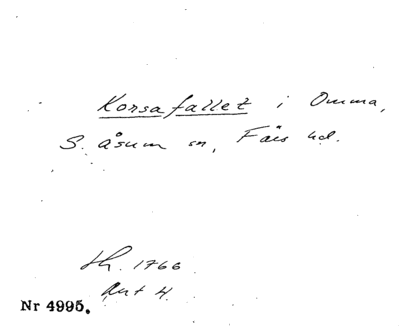 Korsafallet i Omma,
S. åsum sn, Färs hd.
th. 1766
Akt 4.
Nr 4995.